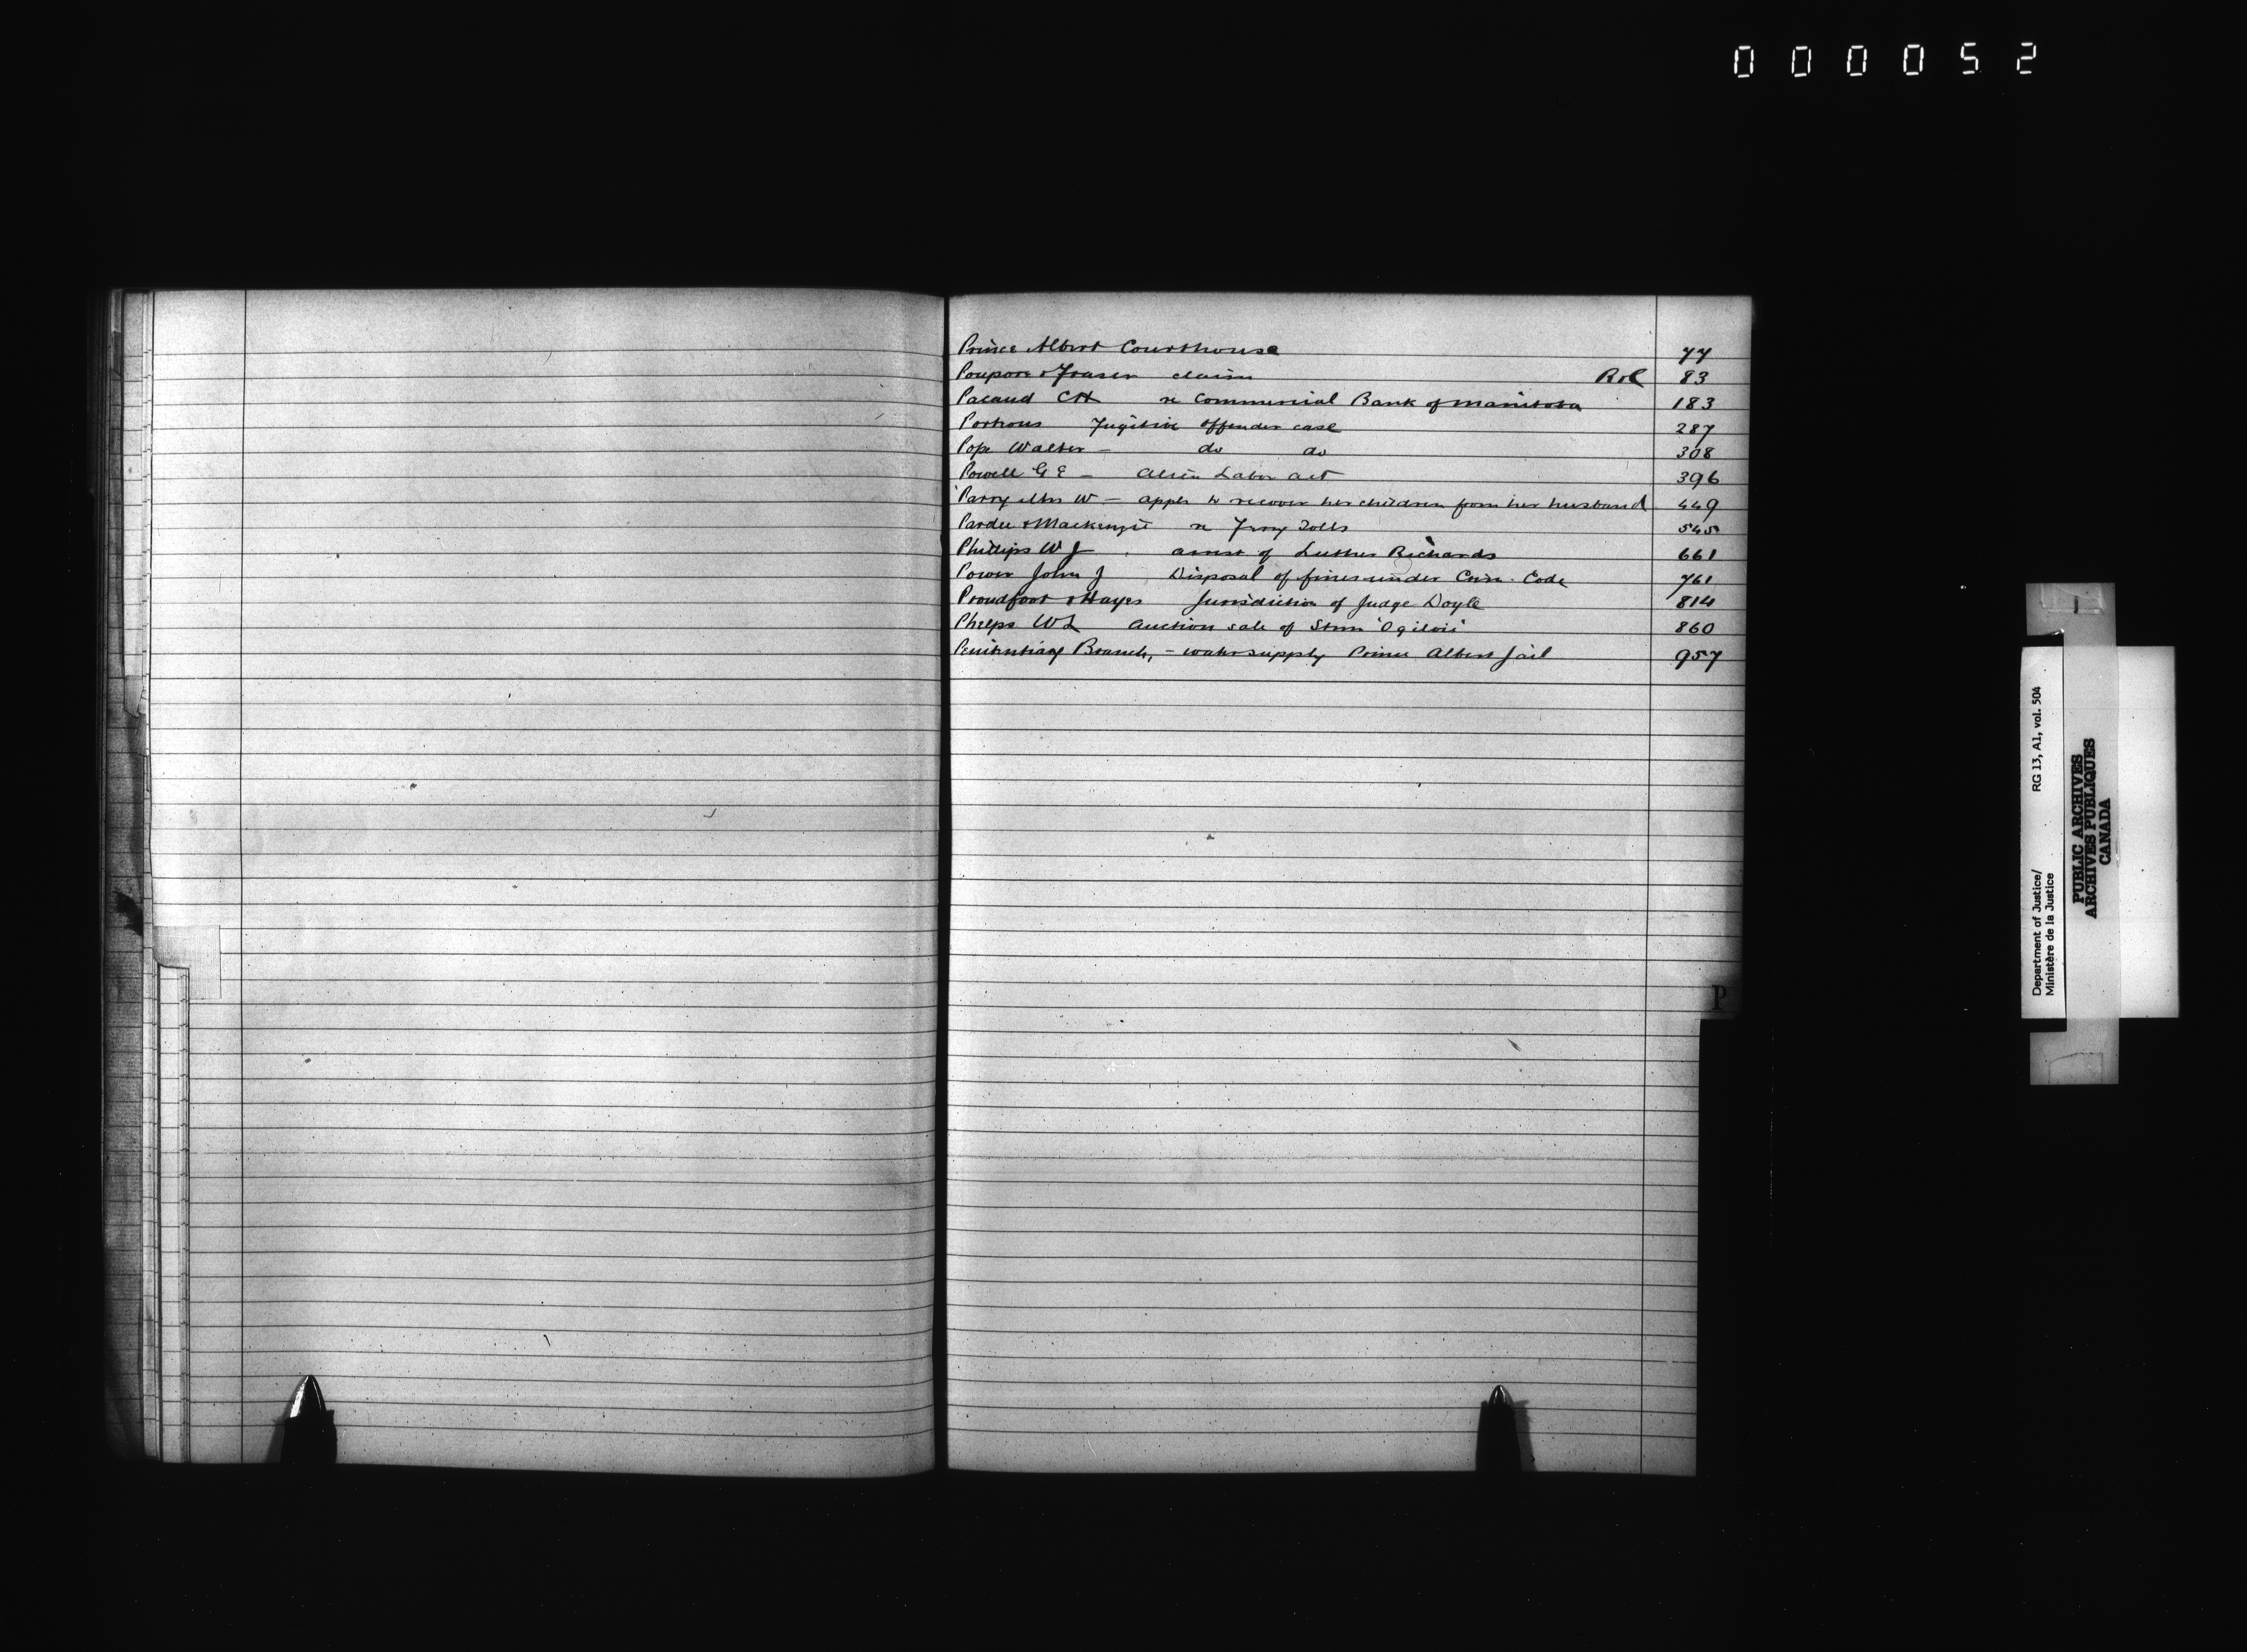 000052
Prince Albert Courthouse 77
Poupore & Fraser claim R&C 83
Pacaud CH re Commercial Bank of Manitoba 183
Portrous Fugitive offender case 287
Pope Walter - do do 308
Powell G E - Alien Labor Act 396
Parry Mrs W - appln to recover her children from her husband 449
Pardee & Mackenzie re Ferry Tolls 545
Phillips W J arrest of Luther Richards 661
Power John J Disposal of fines under Crim. Code 761
Proudfoot & Hayes Jurisdiction of Judge Doyle 814
Phelps W L Auction sale of Stmr 'Ogilvie' 860
Penitentiary Branch, - water supply Prince Albert Jail 957
P
Department of Justice/ RG 13, A1, vol. 504
Ministère de la Justice
PUBLIC ARCHIVES
ARCHIVES PUBLIQUES
CANADA